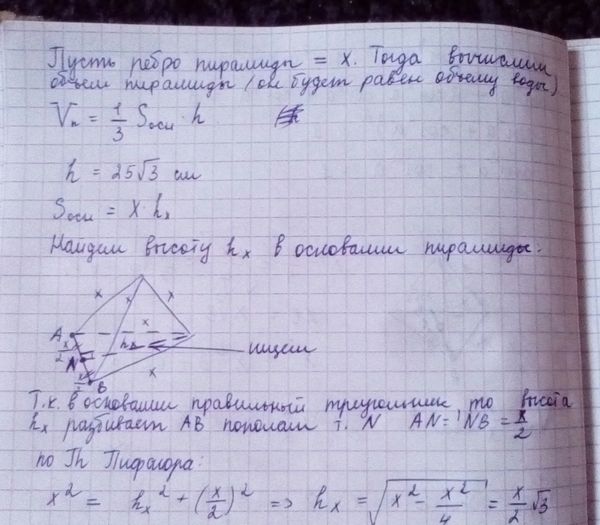 Пусть ребро пирамиды = x. Тогда вычислим
объем пирамиды (он будет равен объему воды)
Vп = 1/3 Sосн · h
h = 25√3 см
Sосн = x · hₓ
Найдем высоту hₓ в основании пирамиды.
x x x
A x
x/2 N hₓ ищем
x/2 B x
Т.к. в основании правильный треугольник то высота
hₓ разбивает AB пополам т. N AN = NB = x/2
по Th Пифагора:
x² = hₓ² + (x/2)² => hₓ = √(x² - x²/4) = x/2 √3